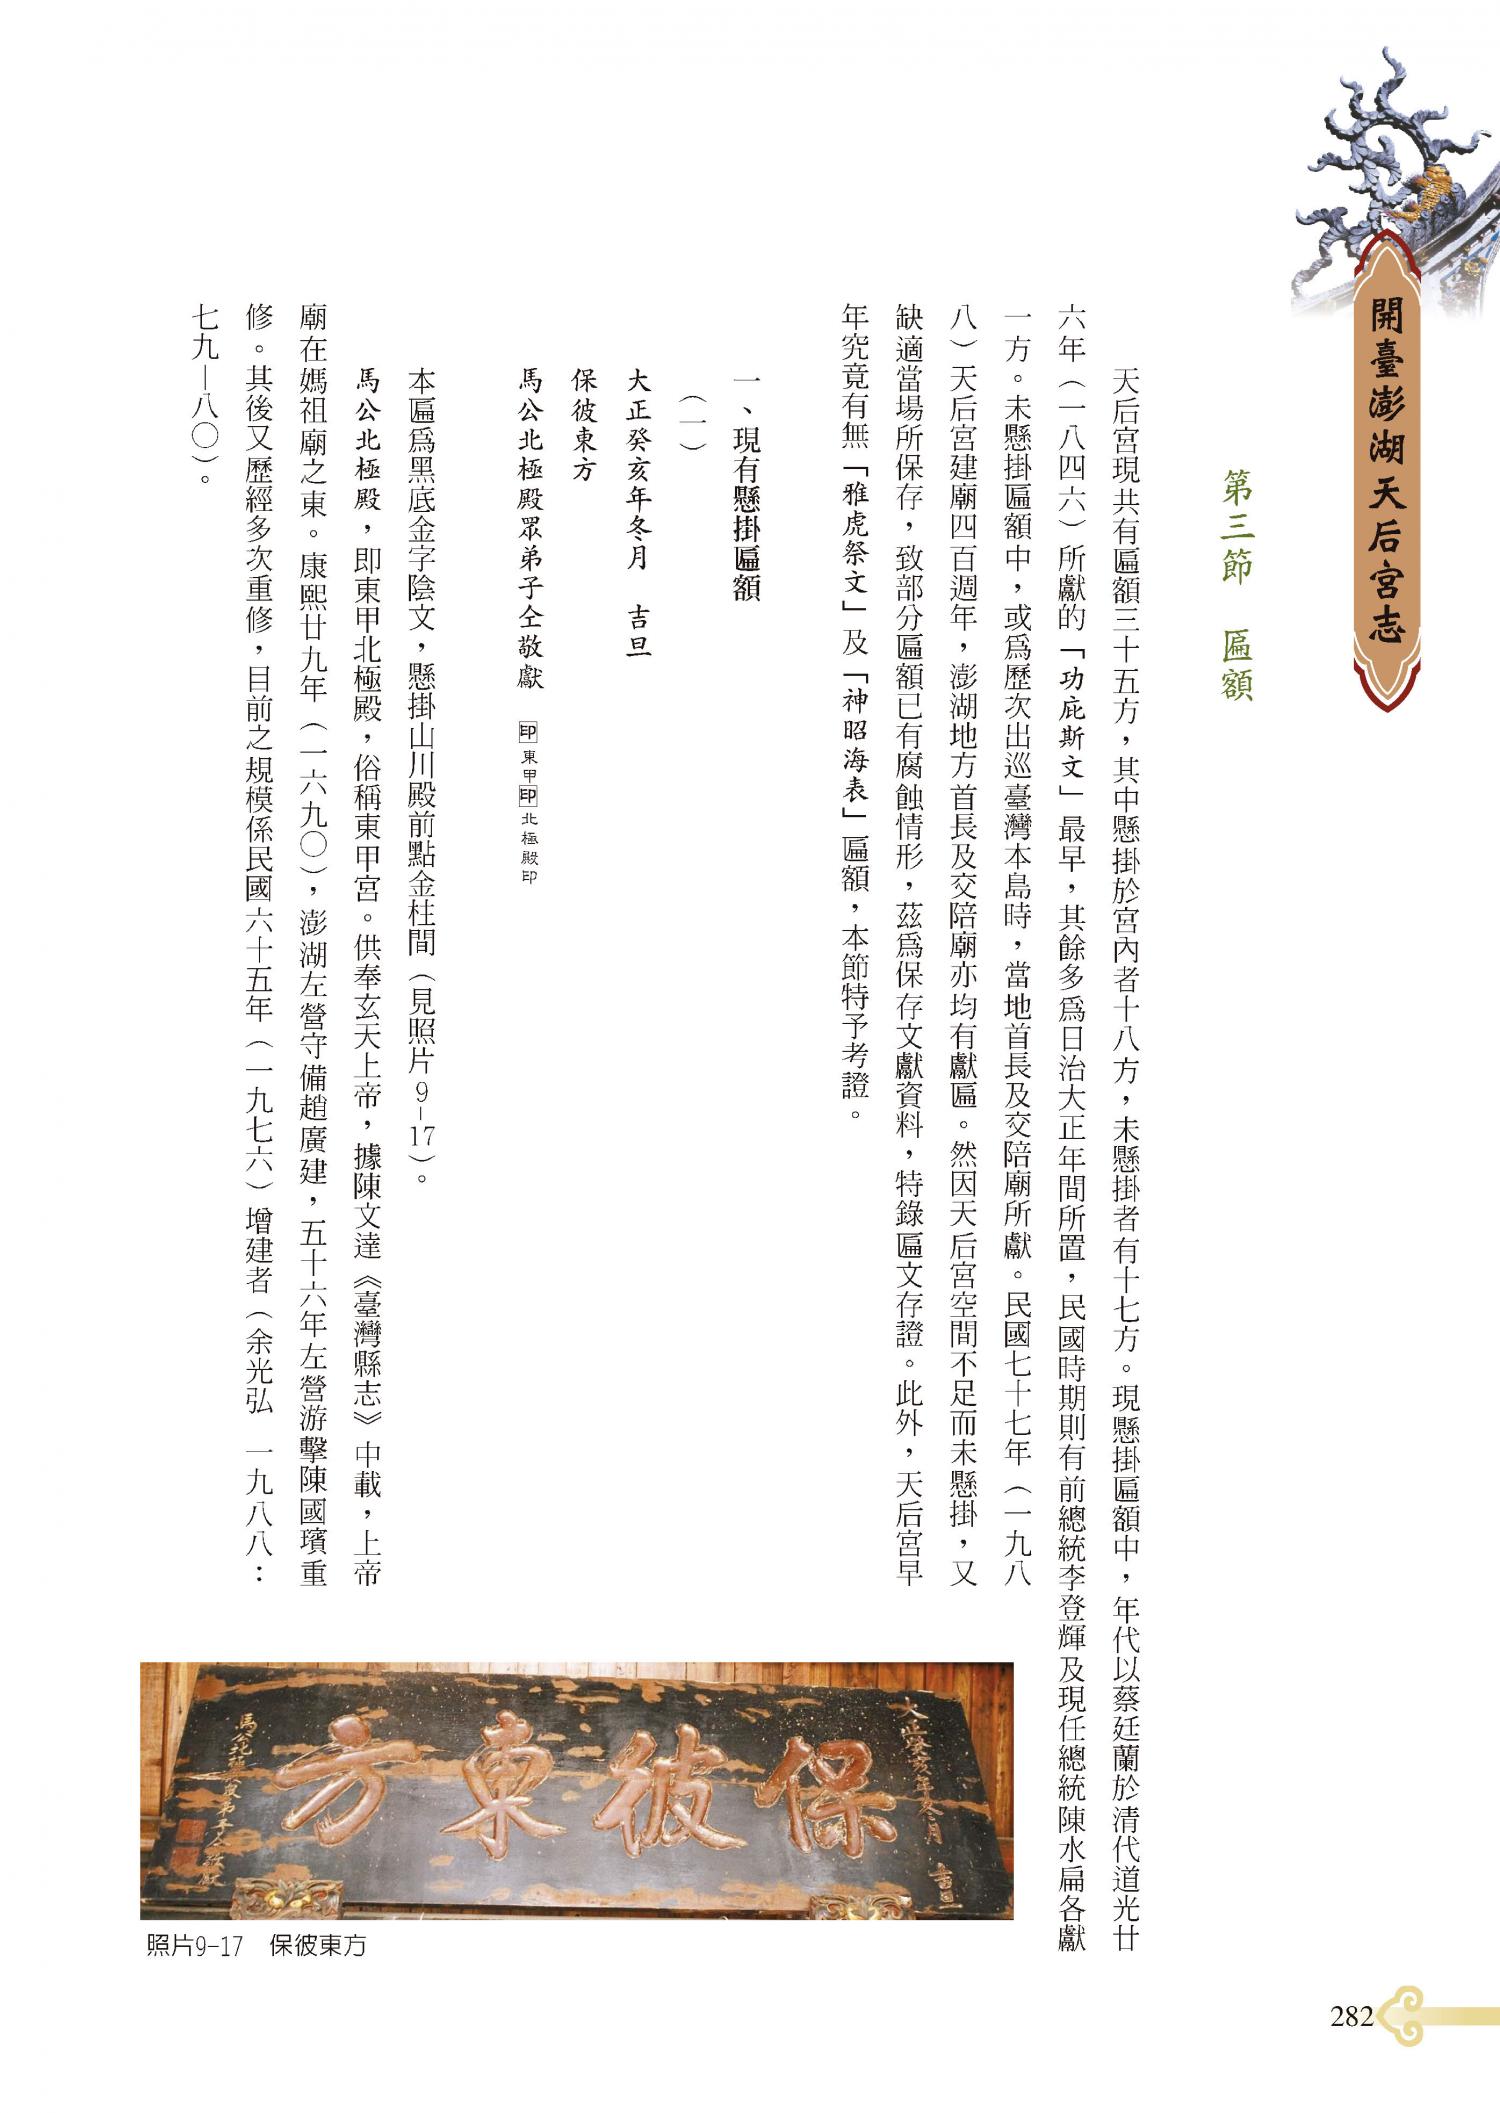 開臺澎湖天后宮志
第三節　匾額
天后宮現共有匾額三十五方，其中懸掛於宮內者十八方，未懸掛者有十七方。現懸掛匾額中，年代以蔡廷蘭於清代道光廿
六年（一八四六）所獻的「功庇斯文」最早，其餘多為日治大正年間所置，民國時期則有前總統李登輝及現任總統陳水扁各獻
一方。未懸掛匾額中，或為歷次出巡臺灣本島時，當地首長及交陪廟所獻。民國七十七年（一九八
八）天后宮建廟四百週年，澎湖地方首長及交陪廟亦均有獻匾。然因天后宮空間不足而未懸掛，又
缺適當場所保存，致部分匾額已有腐蝕情形，茲為保存文獻資料，特錄匾文存證。此外，天后宮早
年究竟有無「雅虎祭文」及「神昭海表」匾額，本節特予考證。
一、現有懸掛匾額
（一）
大正癸亥年冬月　吉旦
保彼東方
馬公北極殿眾弟子仝敬獻　印東甲印北極殿印
本匾為黑底金字陰文，懸掛山川殿前點金柱間（見照片9-17）。
馬公北極殿，即東甲北極殿，俗稱東甲宮。供奉玄天上帝，據陳文達《臺灣縣志》中載，上帝
廟在媽祖廟之東。康熙廿九年（一六九〇），澎湖左營守備趙廣建，五十六年左營游擊陳國璸重
修。其後又歷經多次重修，目前之規模係民國六十五年（一九七六）增建者（余光弘　一九八八：
七九—八〇）。
大正癸亥年冬月　吉旦
保彼東方
馬公北極殿眾弟子仝敬獻
照片9-17　保彼東方
282